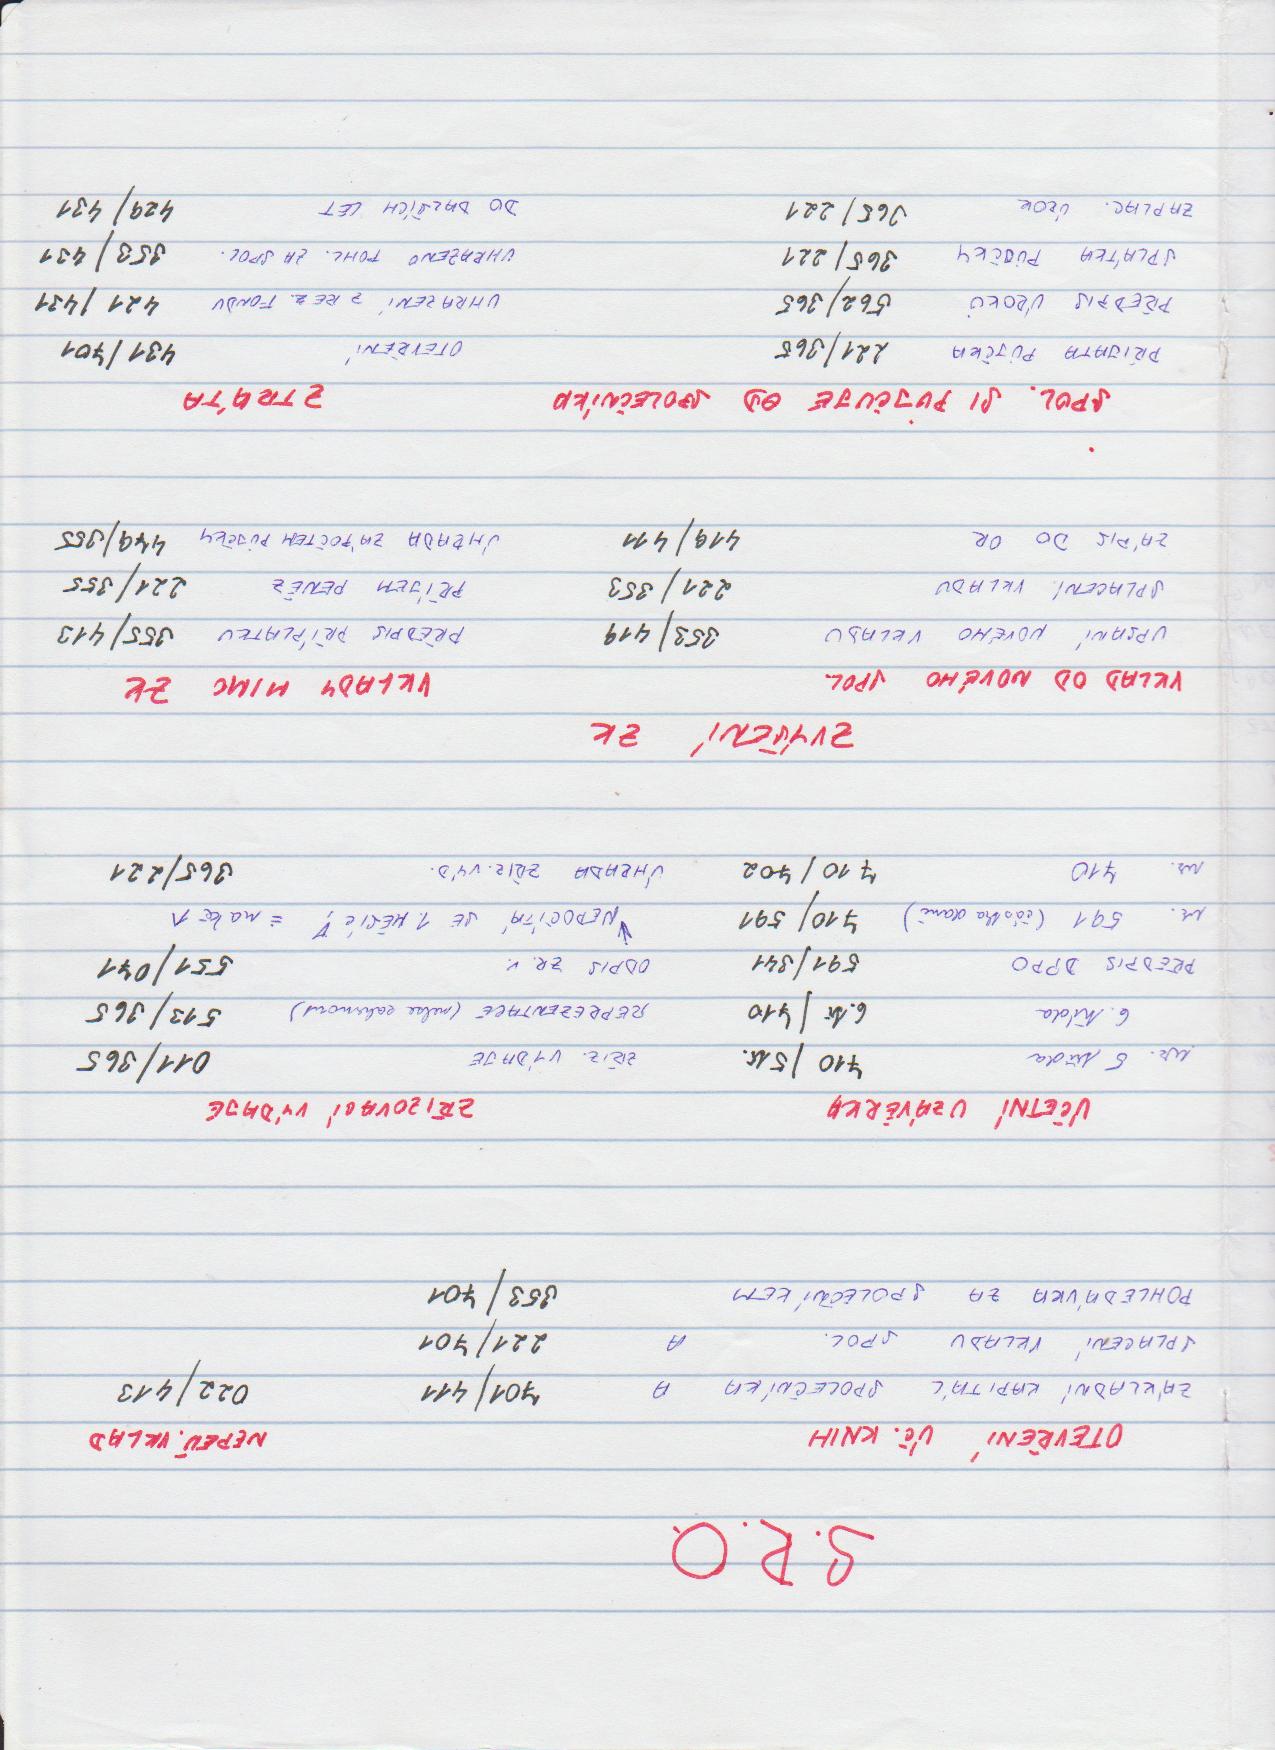 S.R.O.
OTEVŘENÍ ÚČ. KNIH NEPEŇ. VKLAD
ZÁKLADNÍ KAPITÁL SPOLEČNÍKA A 701/411 022/413
SPLACENÍ VKLADU SPOL. A 221/701
POHLEDÁVKA ZA SPOLEČNÍKEM 353/701
ÚČETNÍ UZÁVĚRKA ZŘIZOVACÍ VÝDAJE
UZ. 5 třída 710/5.tř. ZŘIZ. VÝDAJE 011/365
6. třída 6.tř/710 REPREZENTACE 513/365
PŘEDPIS DPPO 591/341 ODPIS ZŘ. V. 551/071
UZ. 591 (částka daně) 710/591 NEPOČÍTÁ SE 1. MĚSÍC!
UZ. 710 710/702 ÚHRADA ZŘIZ. VÝD. 365/221
ZVÝŠENÍ ZK
VKLAD OD NOVÉHO SPOL. VKLADY MIMO ZK
UPSÁNÍ NOVÉHO VKLADU 353/419 PŘEDPIS PŘÍPLATKU 355/413
SPLACENÍ VKLADU 221/353 PŘÍJEM PENĚZ 221/355
ZÁPIS DO OR 419/411 ÚHRADA ZÁPOČTEM PŮJČKY 479/355
SPOL. SI PŮJČUJE OD SPOLEČNÍKA ZTRÁTA
PŘIJATÁ PŮJČKA 221/365 OTEVŘENÍ 431/701
PŘEDPIS ÚROKŮ 562/365 UHRAZENÍ Z REZ. FONDU 421/431
SPLÁTKA PŮJČKY 365/221 UHRAZENO POHL. ZA SPOL. 353/431
ZAPLAC. ÚROK 365/221 DO DALŠÍCH LET 429/431